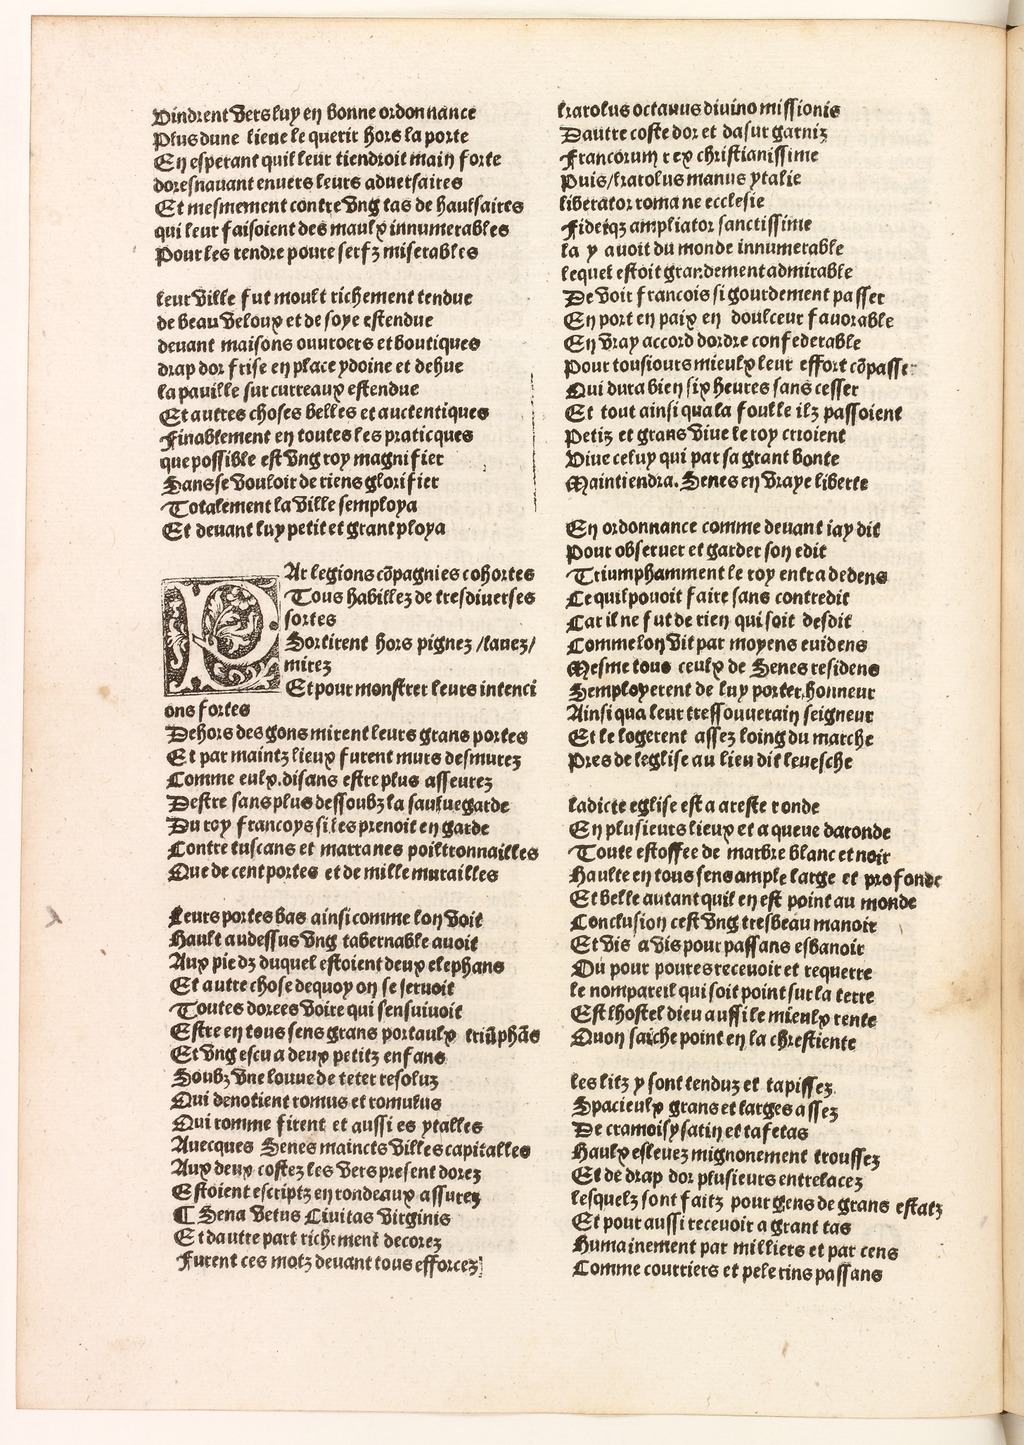 Vindrent vers luy en bonne ordonnance
Plus dune lieue le querir hors la porte
En esperant quil leur tiendroit main forte
doresnauant enuers leurs aduersaires
Et mesmement contre vng tas de haulsaires
qui leur faisoient des maulx innumerables
Pour les rendre poure serfz miserables
leur ville fut moult richement tendue
de beau veloux et de soye estendue
deuant maisons ouuroers et boutiques
drap dor frise en place ydoine et dehue
la pauille sur curreaux estendue
Et autres choses belles et auctentiques
Finablement en toutes les praticques
que possible est vng roy magnifier
Sans se vouloir de riens glorifier
Totalement la ville semploya
Et deuant luy petit et grant ploya
PAr legions cõpagnies cohortes
Tous habillez de tresdiuerses
sortes
Sortirent hors pignez /lauez/
mirez
Et pour monstrer leurs intenci
ons fortes
Dehors des gons mirent leurs grans portes
Et par maintz lieux furent murs desmurez
Comme eulx disans estre plus asseurez
Destre sans plus dessoubz la sauluegarde
Du roy francoys sil les prenoit en garde
Contre tuscans et marranes poiltronnailles
Que de cent portes et de mille murailles
Leurs portes bas ainsi comme lon voit
Hault au dessus vng tabernable auoit
Aux piedz duquel estoient deux elephans
Et autre chose dequoy on se seruoit
Toutes dorees voire qui sensuiuoit
Estre en tous sens grans portaulx triũphãs
Et vng escu a deux petitz enfans
Soubz vne louue de teter resoluz
Qui denotient romus et romulus
Qui romme firent et aussi es ytalles
Auecques Senes maincts villes capitalles
Aux deux costez les vers present dorez
Estoient escriptz en rondeaux assurez
¶ Sena vetus Ciuitas virginis
Et dautre part richement decorez
Furent ces motz deuant tous efforcez
karolus octauus diuino missionis
Dautre coste dor et dasur garniz
Francorum rex christianissime
Puis/karolus manus ytalie
liberator romane ecclesie
Fideiqz ampliator sanctissime
la y auoit du monde innumerable
lequel estoit grandement admirable
De voir francois si gourdement passer
En port en paix en doulceur fauorable
En vray accord dordre confederable
Pour tousiours mieulx leur effort cõpasser
Qui dura bien six heures sans cesser
Et tout ainsi qua la foulle ilz passoient
Petiz et grans viue le roy crioient
Viue celuy qui par sa grant bonte
Maintiendra. Senes en vraye liberte
En ordonnance comme deuant iay dit
Pour obseruer et garder son edit
Triumphamment le roy entra dedens
Ce quil pouoit faire sans contredit
Car il ne fut de rien qui soit desdit
Comme lon vit par moyens euidens
Mesme tous ceulx de Senes residens
Semployerent de luy porter honneur
Ainsi qua leur tressouuerain seigneur
Et le logerent assez loing du marche
Pres de leglise au lieu dit leuesche
ladicte eglise est a areste ronde
En plusieurs lieux et a queue daronde
Toute estoffee de marbre blanc et noir
Haulte en tous sens ample large et profonde
Et belle autant quil en est point au monde
Conclusion cest vng tresbeau manoir
Et vis a vis pour passans esbanoir
Ou pour poures receuoir et requerre
le nompareil qui soit point sur la terre
Est lhostel dieu aussi le mieulx rente
Quon saiche point en la chrestiente
les litz y sont tenduz et tapissez
Spacieulx grans et larges assez
De cramoisy satin et tafetas
Haulx esleuez mignonement troussez
Et de drap dor plusieurs entrelacez
lesquelz sont faitz pour gens de grans estatz
Et pour aussi receuoir a grant tas
Humainement par milliers et par cens
Comme courriers et pelerins passans